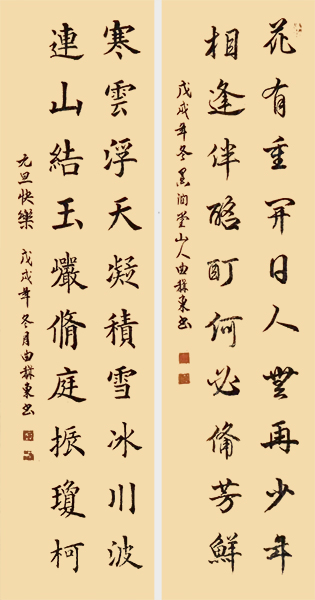 花有重开日人無再少年
相逢伴酩酊何必俻芳鮮
戊戌年冬山人由東书
寒雲浮天凝積雪冰川波
連山結玉巖脩庭振瓊柯
元旦快樂
戊戌年冬月由東书